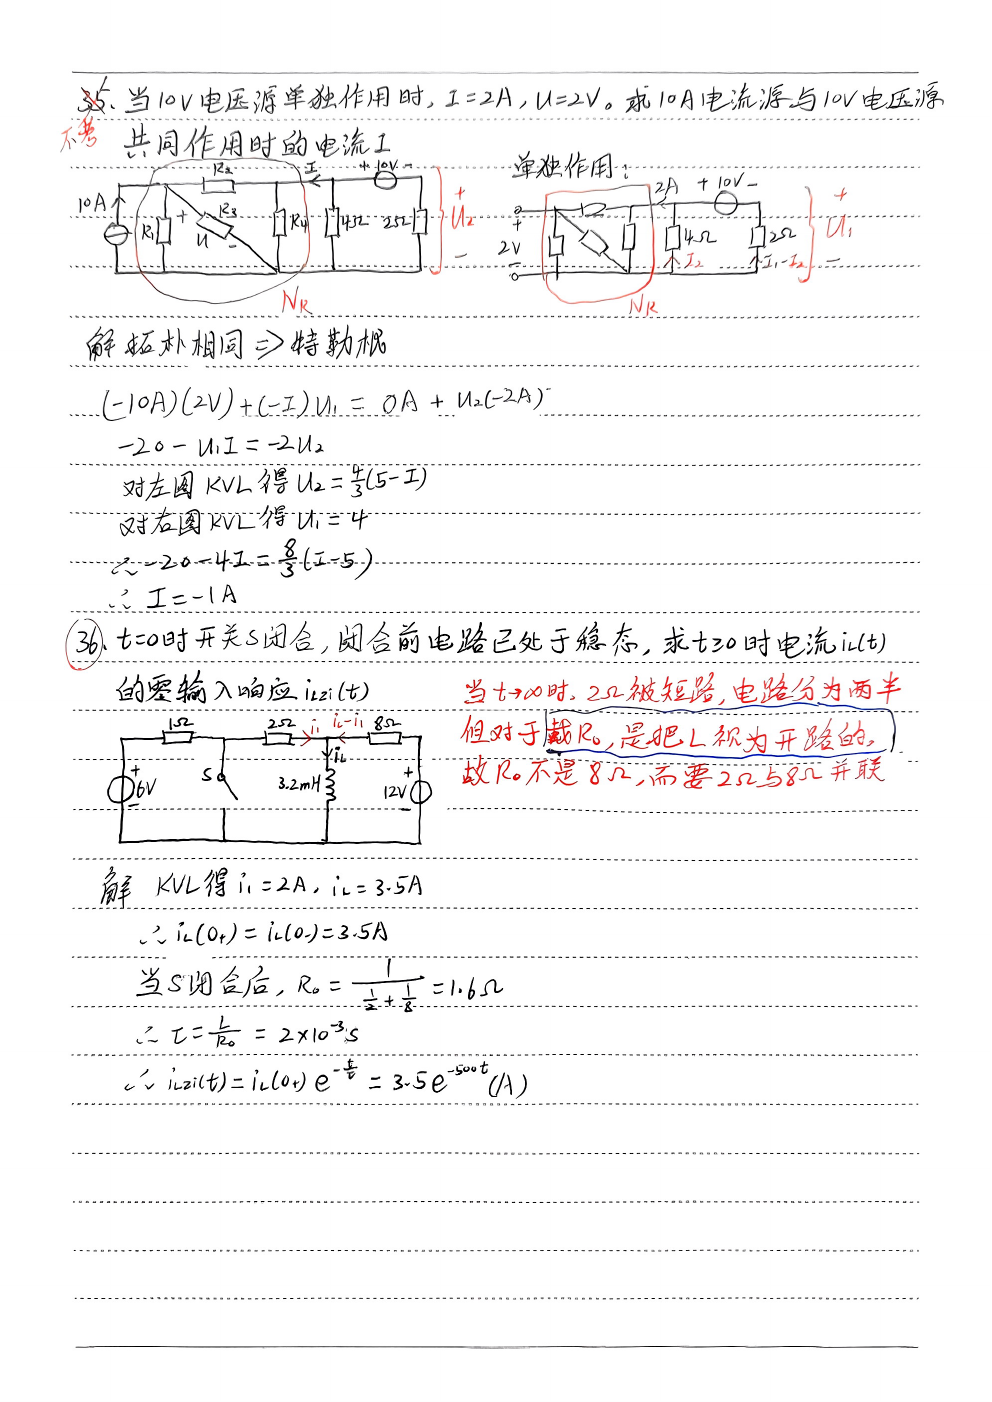 35、当10V电压源单独作用时, I=2A, U=2V。求10A电流源与10V电压源
不考
共同作用时的电流I
单独作用:
R₂ I + 10V -
10A R₁ + U - R₃ R₄ 4Ω 2Ω + U₂ -
N_R
2A + 10V -
+ 2V - 4Ω 2Ω + U₁ -
I₂ I₁-I₂
N_R
解 拓扑相同 => 特勒根
(-10A)(2V)+(-I)U₁ = 0A + U₂(-2A)
-20-U₁I=-2U₂
对左图KVL得 U₂=4/3(5-I)
对右图KVL得 U₁=4
∴ -20-4I=8/3(I-5)
∴ I=-1A
36、t=0时开关S闭合, 闭合前电路已处于稳态, 求t≥0时电流iL(t)
的零输入响应iLzi(t)
当t→∞时, 2Ω被短路, 电路分为两半
但对于戴R₀, 是把L视为开路的,
故R₀不是8Ω, 而要2Ω与8Ω并联
1Ω 2Ω i₁ iL-i₁ 8Ω
S iL
+ 6V - 3.2mH 12V + -
解 KVL得 i₁=2A, iL=3.5A
∴ iL(0+)=iL(0-)=3.5A
当S闭合后, R₀= 1/(1/2+1/8) =1.6Ω
∴ τ=L/R₀ = 2×10⁻³s
∴ iLzi(t)=iL(0+)e^(-t/τ) = 3.5e^(-500t)(A)